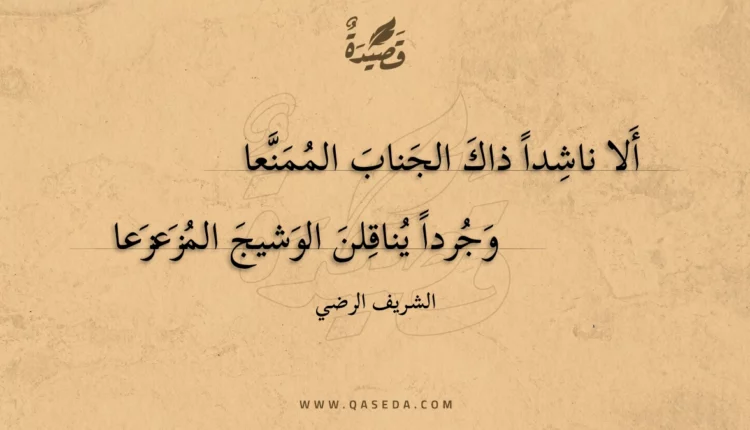 قَصِيْدَةٌ
أَلا ناشِداً ذاكَ الجَنابَ المُمَنَّعا
وَجُرداً يُناقِلنَ الوَشيجَ المُزَعزَعا
الشريف الرضي
WWW.QASEDA.COM